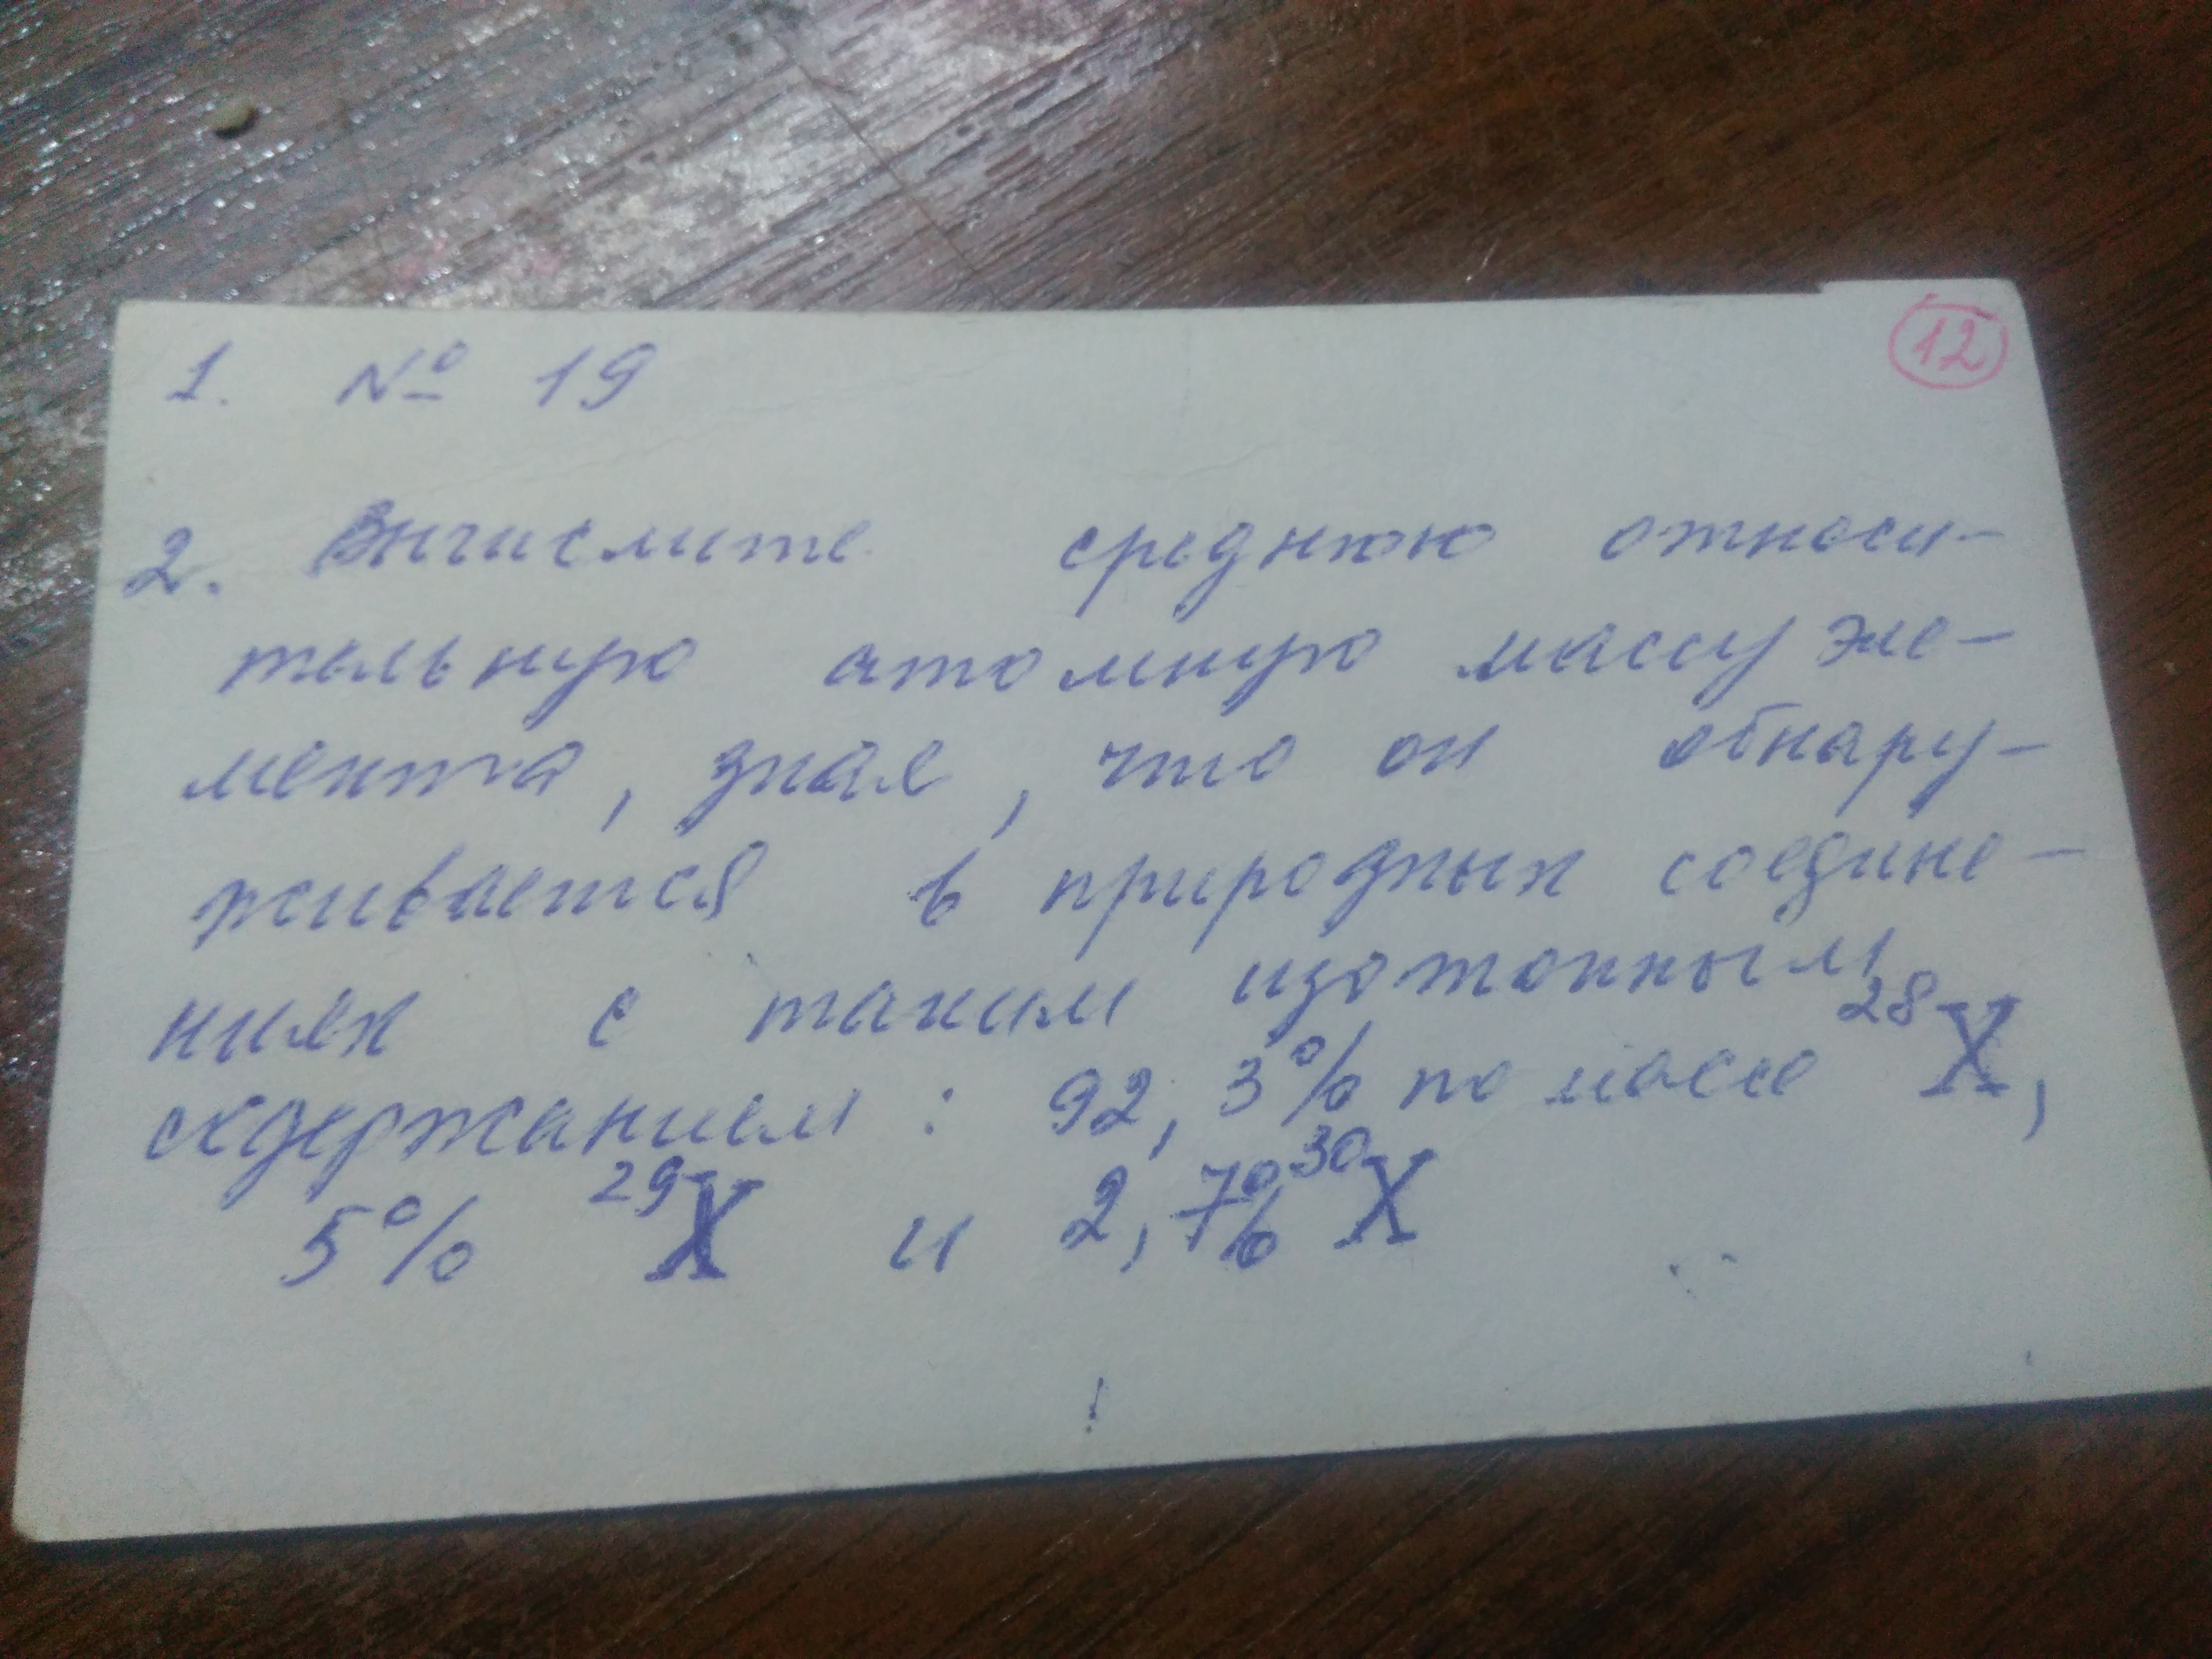 12
1. № 19
2. Вычислите среднюю относи-
тельную атомную массу эле-
мента, зная, что он обнару-
живается в природных соедине-
ниях с таким изотопным
содержанием: 92,3% по массе ²⁸X,
5% ²⁹X и 2,7% ³⁰X